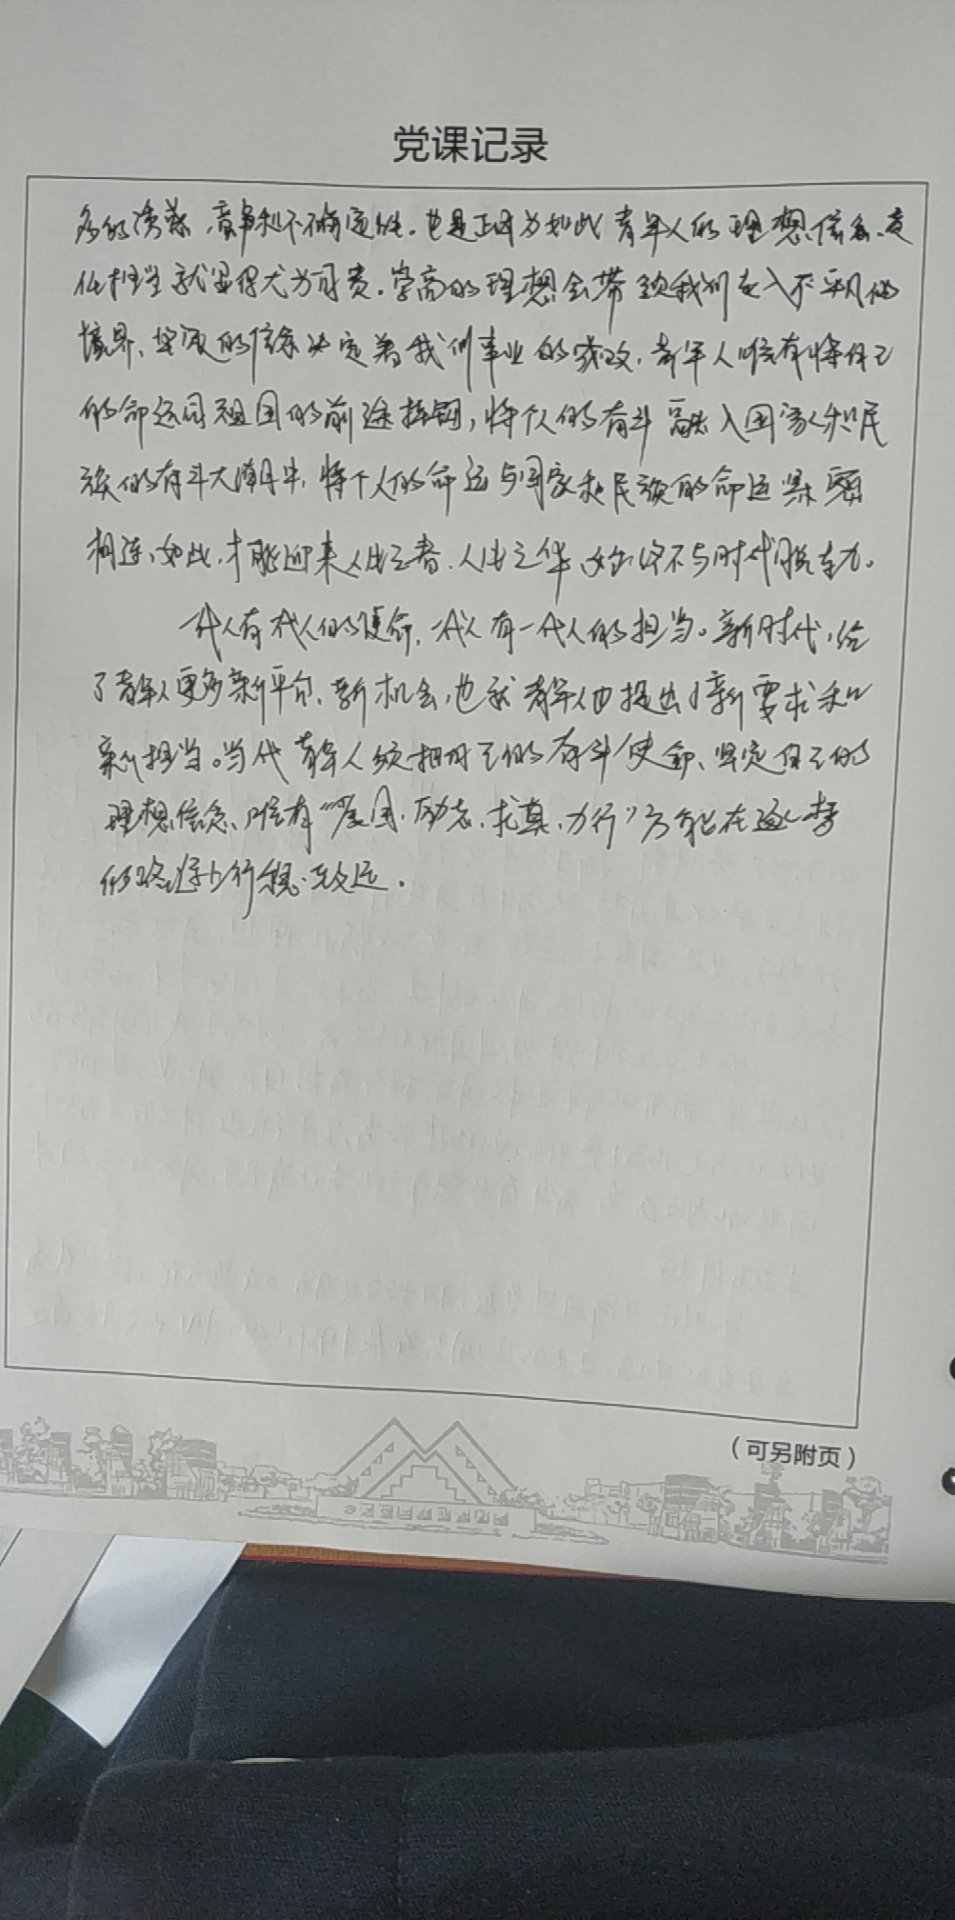 党课记录
多的诱惑、竞争和不确定性。也是正因为如此青年人的理想、信念、责
任担当就显得尤为可贵。崇高的理想会带领我们走入不平凡的
境界、坚定的信念决定着我们事业的成败。青年人唯有将自己
的命运同祖国的前途挂钩，将个人的奋斗融入国家和民
族的奋斗大潮中，将个人的命运与国家和民族的命运紧紧
相连，如此，才能迎来人生之春、人生之华，始终不与时代脱
一代人有一代人的使命，一代人有一代人的担当。新时代，给
了青年人更多新平台、新机会，也就青年人也提出了新要求和
新担当。当代青年人须把对自己的奋斗使命、坚定自己的
理想信念、唯有“爱国、励志、求真、力行”方能在逐梦
的路途上行稳致远。
（可另附页）